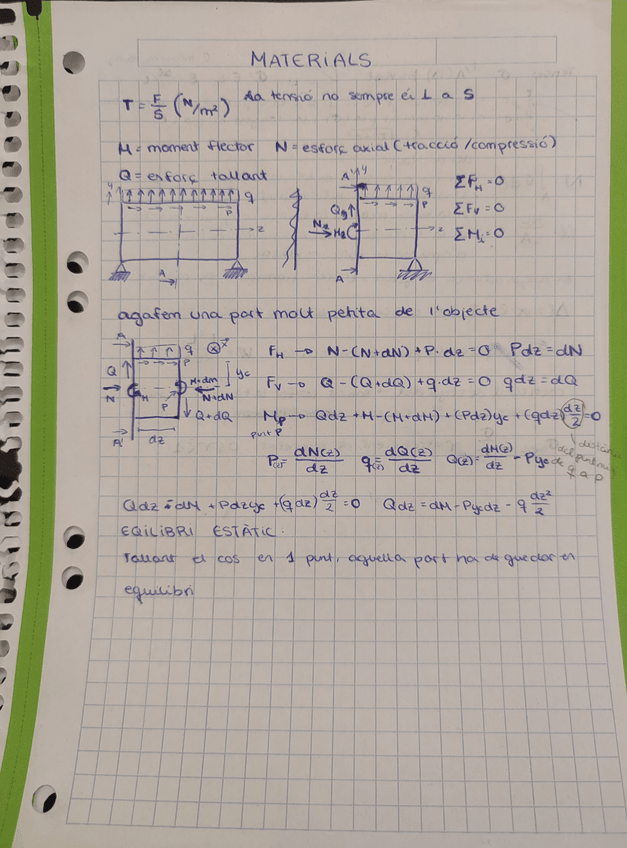 MATERIALS
T = F/S (N/m²) La tensió no sempre és ⊥ a S
M = moment flector N = esforç axial (tracció/compressió)
Q = esforç tallant
y q P z A
A' y q P Qg Na Ma z A
ΣF_H = 0
ΣF_V = 0
ΣM_i = 0
agafem una part molt petita de l'objecte
A q Q P yc N M M+dM N+dN P Q+dQ A' dz
F_H → N-(N+dN)+P·dz=0 Pdz=dN
F_V → Q-(Q+dQ)+q·dz=0 qdz=dQ
M_P → Qdz+M-(M+dM)+(Pdz)yc+(qdz)dz/2=0
punt P
P(z)=dN(z)/dz q(z)=dQ(z)/dz Q(z)=dM(z)/dz - Pyc
de q a P
Qdz-dM+Pdzyc+(qdz)dz/2=0 Qdz=dM-Pycdz-q dz²/2
EQILIBRI ESTÀTIC.
Tallant el cos en 1 punt, aquella part ha de quedar en
equilibri